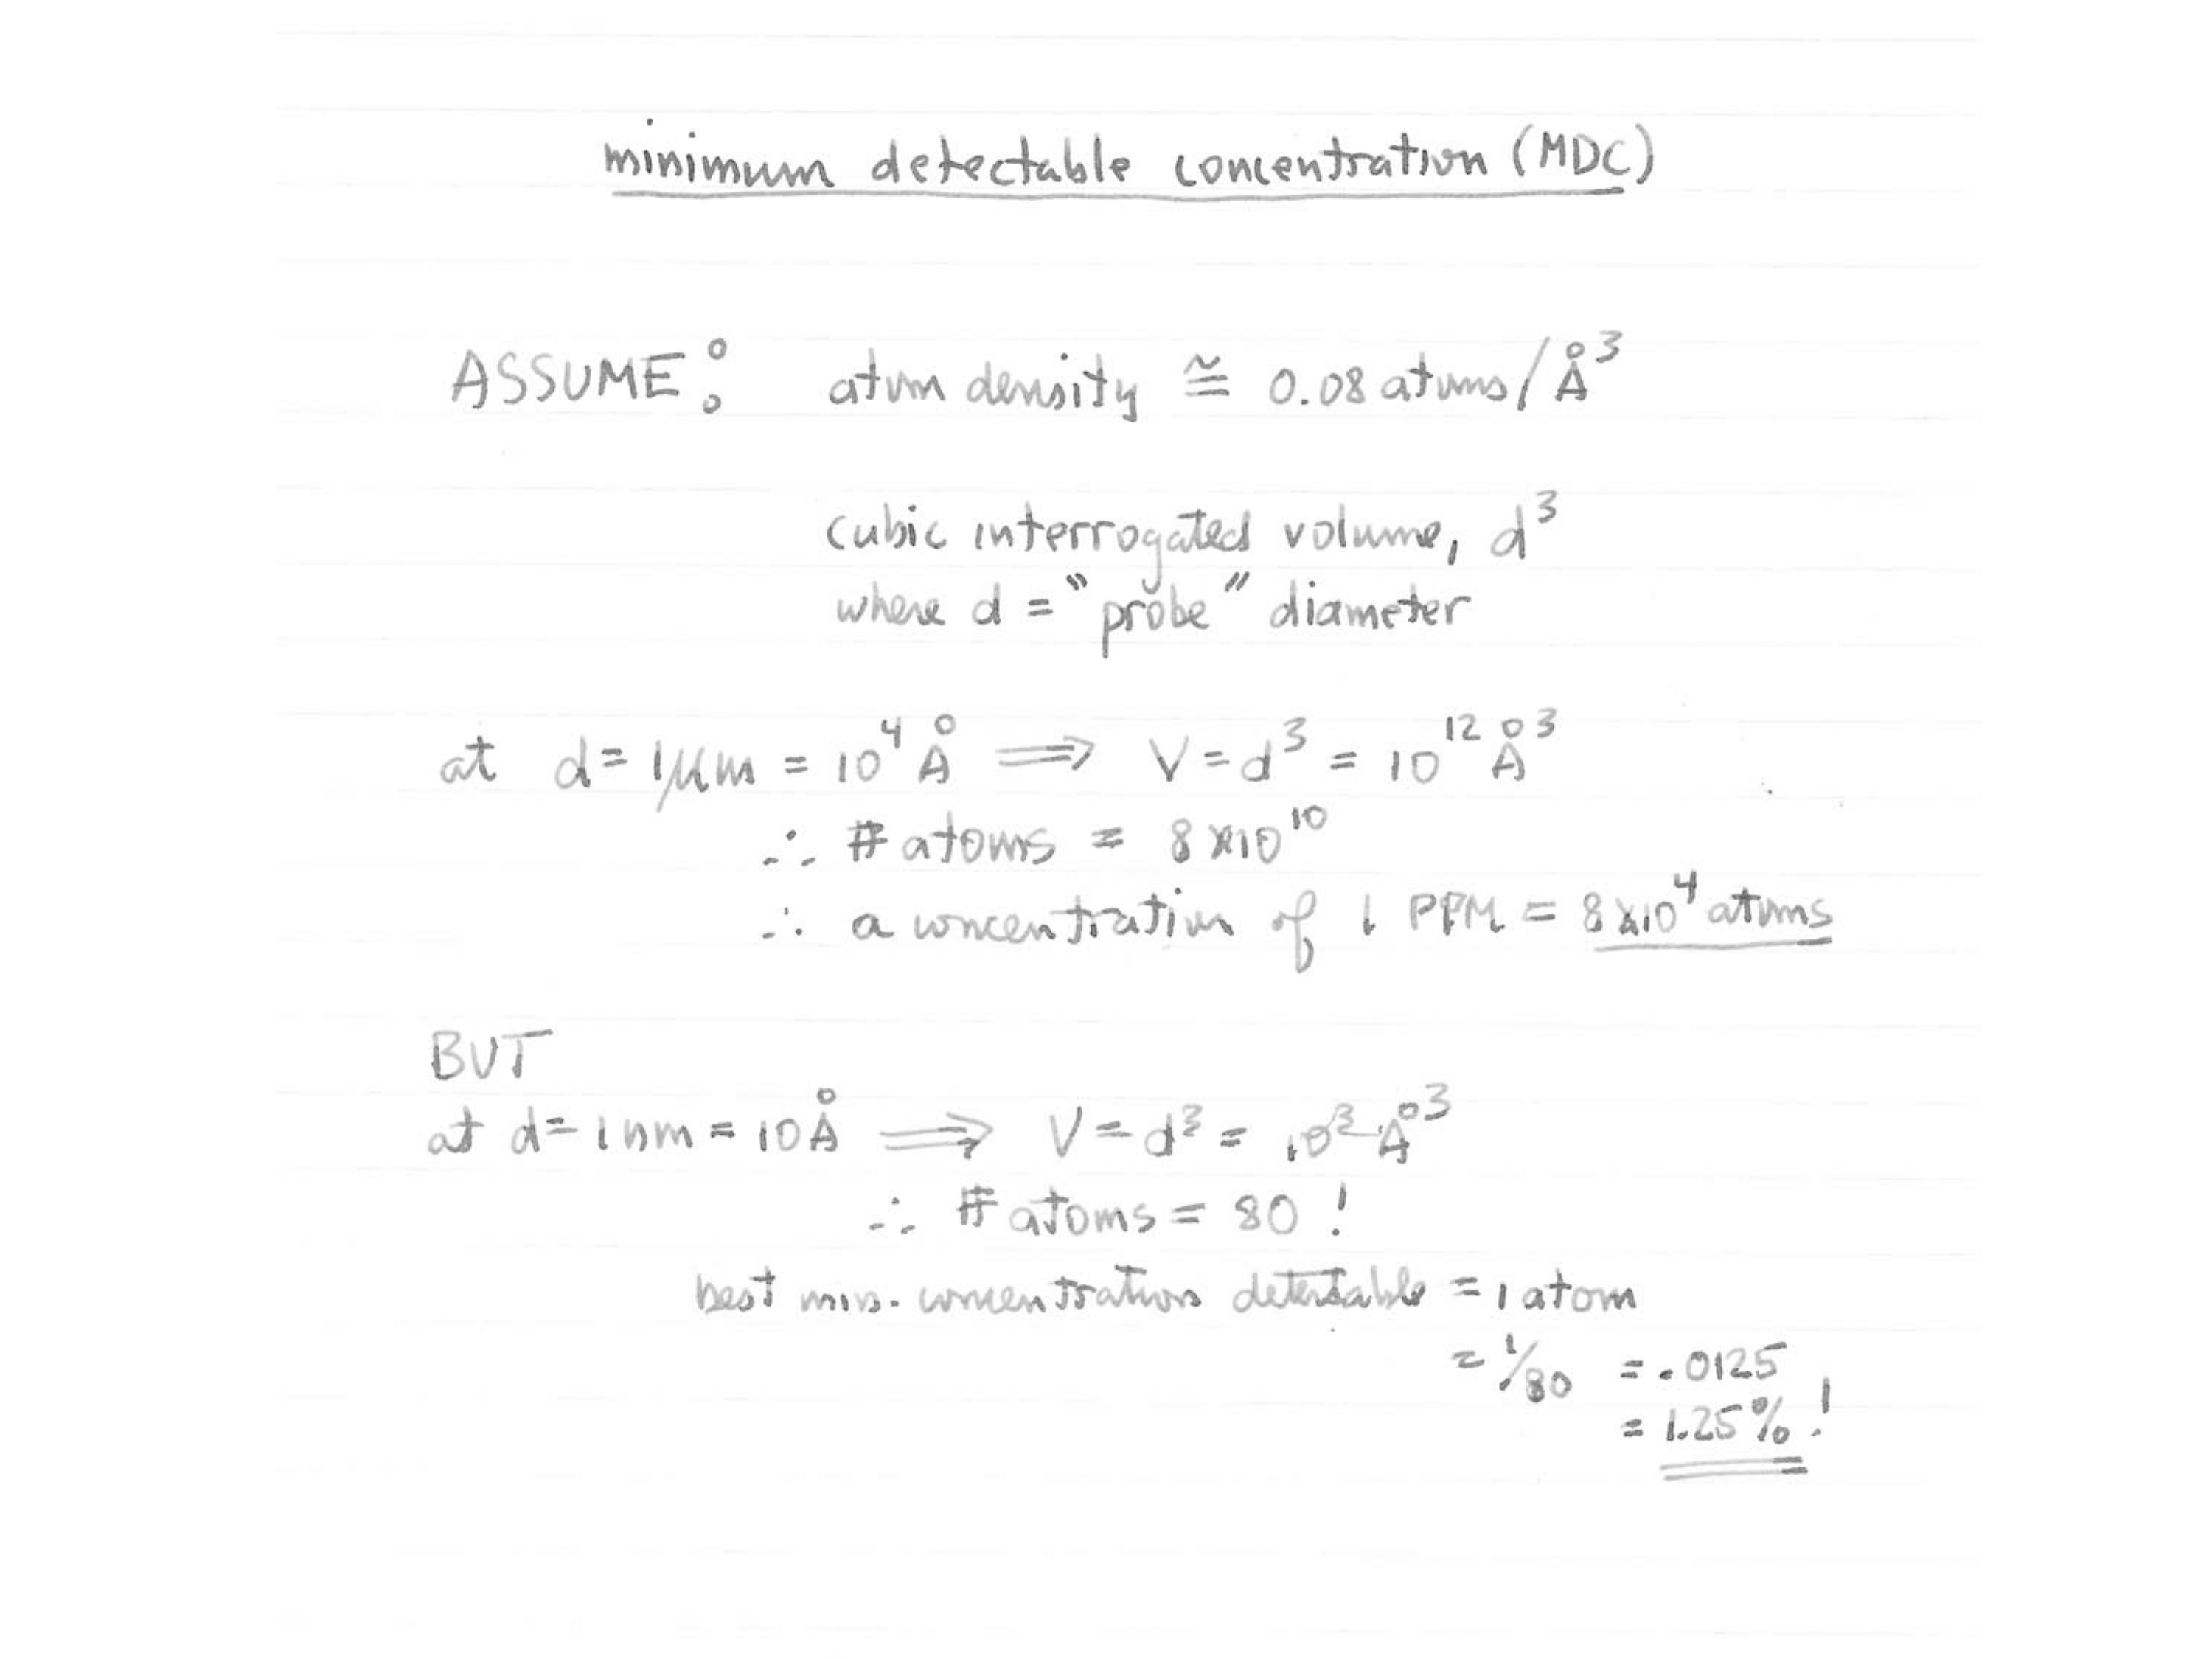 minimum detectable concentration (MDC)
ASSUME: atom density ≅ 0.08 atoms/Å³
cubic interrogated volume, d³
where d = "probe" diameter
at d = 1μm = 10⁴ Å ⟹ V = d³ = 10¹² Å³
∴ # atoms = 8x10¹⁰
∴ a concentration of 1 PPM = 8x10⁴ atoms
BUT
at d = 1nm = 10Å ⟹ V = d³ = 10³ Å³
∴ # atoms = 80 !
best min. concentration detectable = 1 atom
= 1/80 = .0125
= 1.25% !